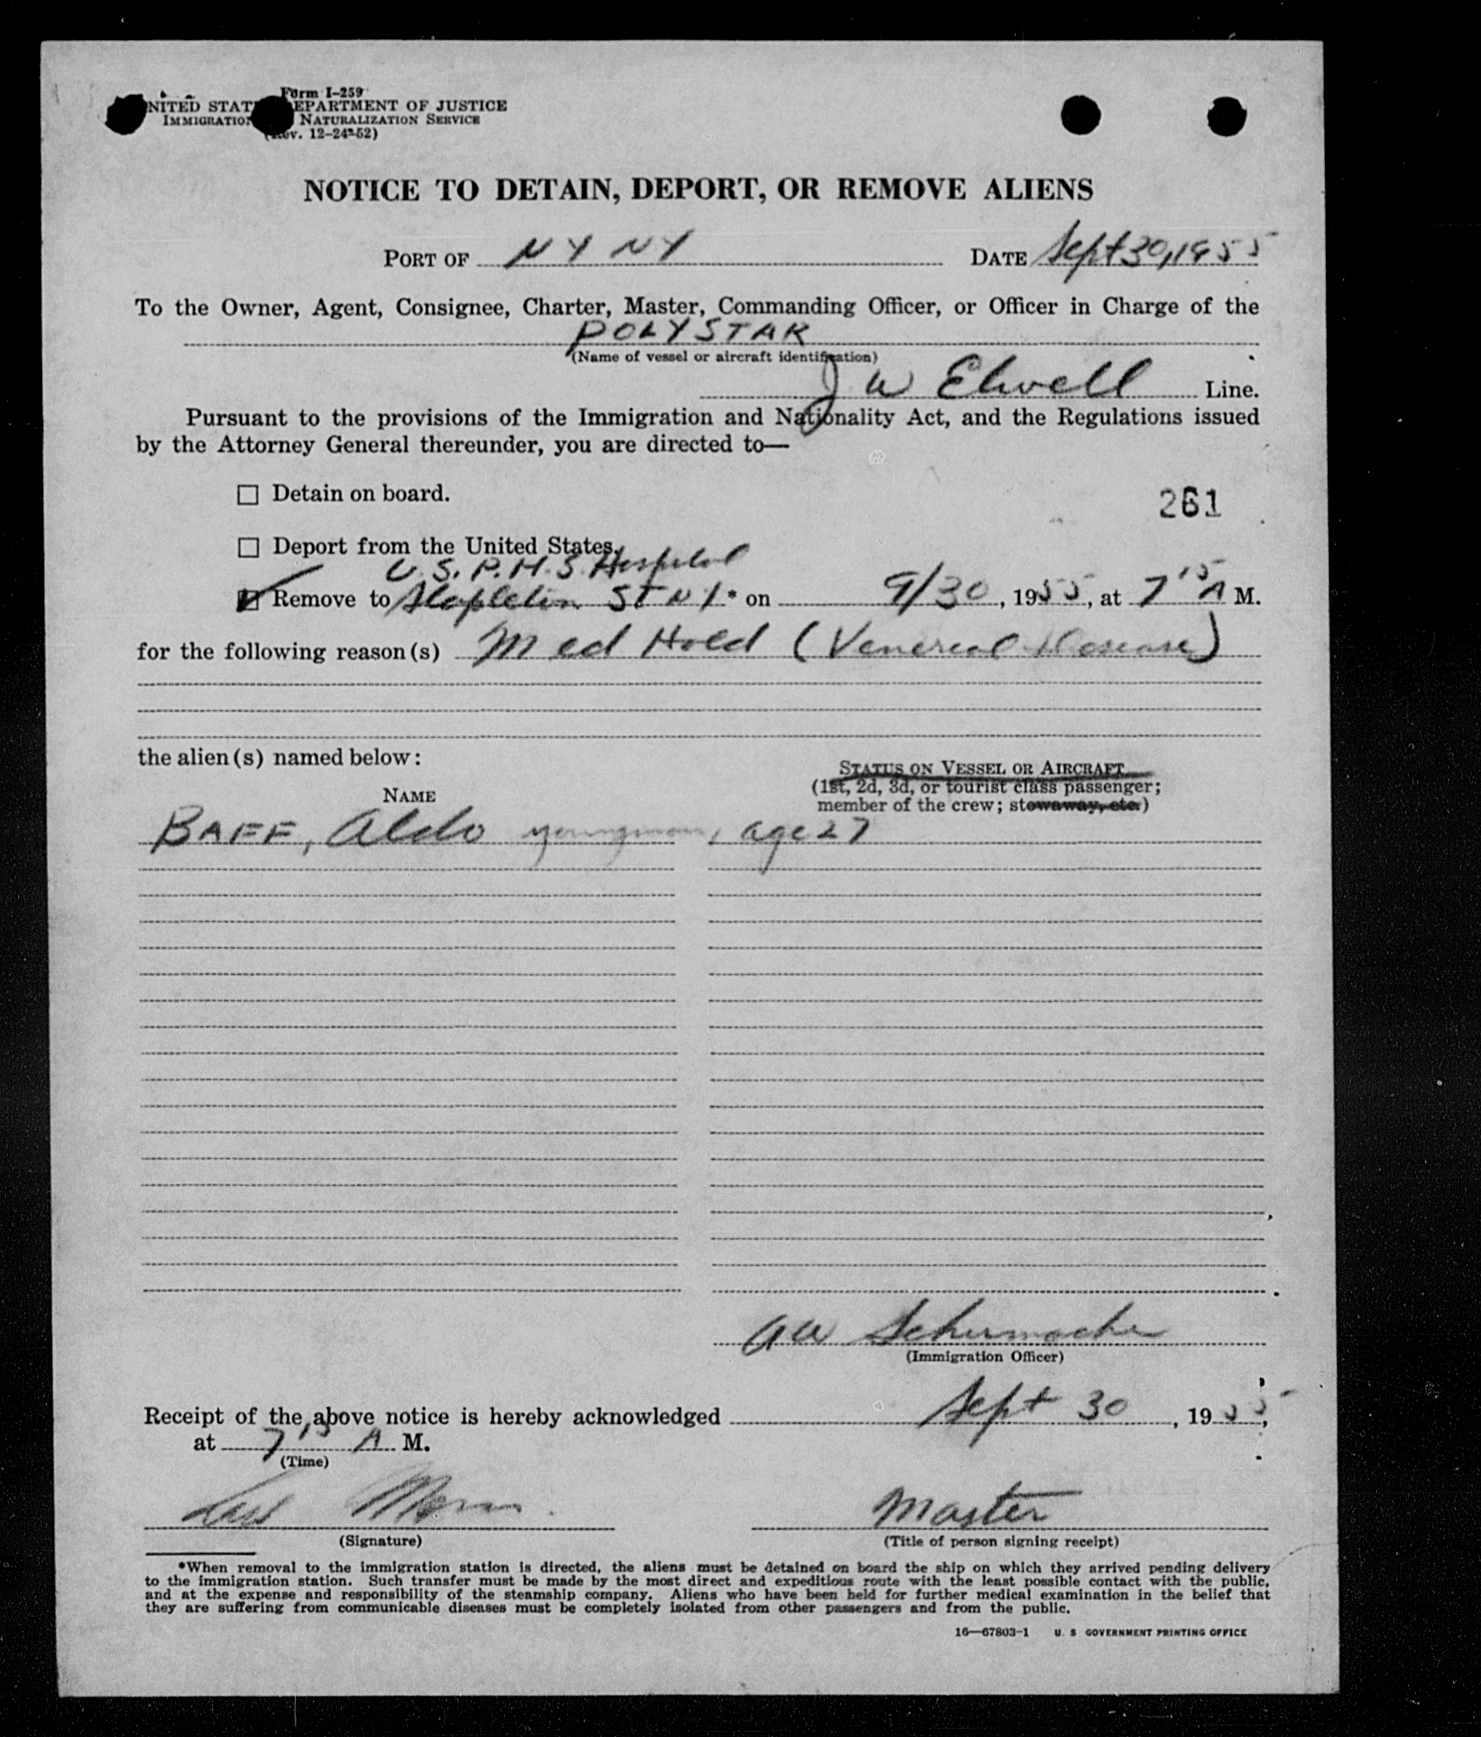 Form I-259
UNITED STATES DEPARTMENT OF JUSTICE
IMMIGRATION NATURALIZATION SERVICE
(Rev. 12-24-52)
NOTICE TO DETAIN, DEPORT, OR REMOVE ALIENS
PORT OF N Y N Y DATE Sept 30, 1955
To the Owner, Agent, Consignee, Charter, Master, Commanding Officer, or Officer in Charge of the
POLYSTAR
(Name of vessel or aircraft identification)
J W Elwell Line.
Pursuant to the provisions of the Immigration and Nationality Act, and the Regulations issued
by the Attorney General thereunder, you are directed to—
☐ Detain on board.
261
☐ Deport from the United States.
U.S.P.H.S. Hospital
Remove to Stapleton St N Y * on 9/30, 1955, at 7 15 A M.
for the following reason(s) Med Hold (Venereal Disease)
the alien(s) named below:
STATUS ON VESSEL OR AIRCRAFT
(1st, 2d, 3d, or tourist class passenger;
NAME
member of the crew; stowaway, etc.)
BAFF, Aldo age 27
A W Schumacher
(Immigration Officer)
Receipt of the above notice is hereby acknowledged Sept 30, 1955,
at 7 15 A M.
(Time)
Master
(Signature) (Title of person signing receipt)
*When removal to the immigration station is directed, the aliens must be detained on board the ship on which they arrived pending delivery
to the immigration station. Such transfer must be made by the most direct and expeditious route with the least possible contact with the public,
and at the expense and responsibility of the steamship company. Aliens who have been held for further medical examination in the belief that
they are suffering from communicable diseases must be completely isolated from other passengers and from the public.
16—67803-1 U. S GOVERNMENT PRINTING OFFICE